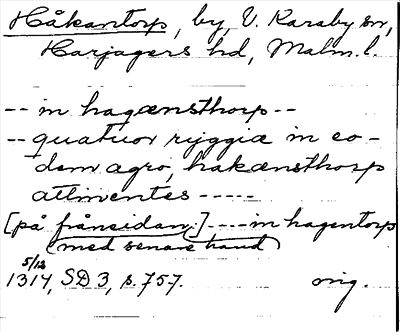 Håkantorp, by, V. Karaby sn,
Harjagers hd, Malm. l.
-- in hagænsthorp --
-- quatuor ryggiæ in eo-
dem agro, hakænsthorp
attinentes -----
[på frånsidan:] ---- in hagentorp
(med senare hand)
5/12
1314, SD 3, s. 757. orig.